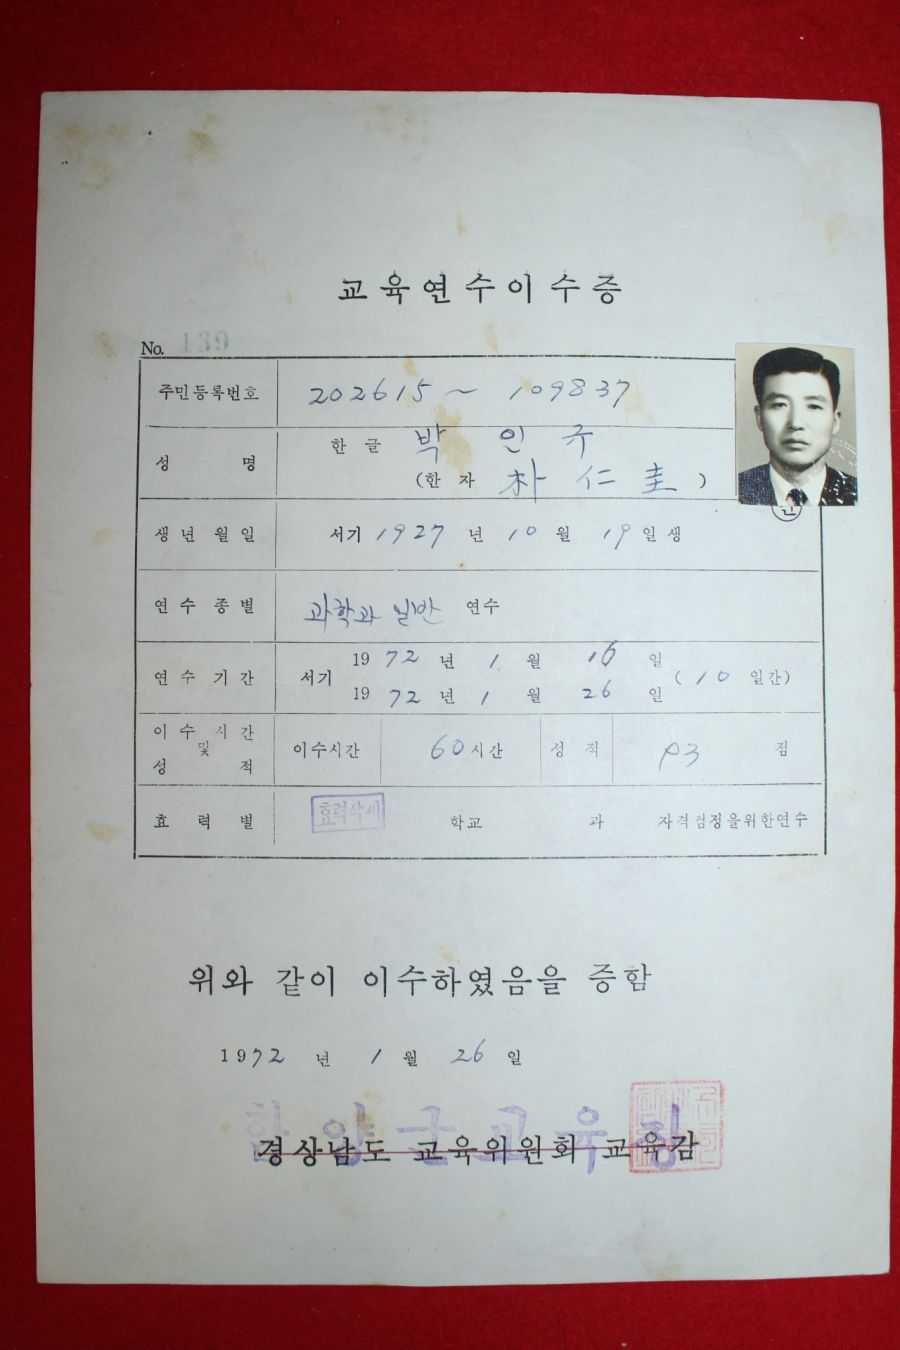 교육연수이수증
No. 139
주민등록번호 202615 ~ 109837
성 명 한글 박 인 규
(한자 朴 仁 圭)
생년월일 서기 1927 년 10 월 19 일생
연수종별 과학과 일반 연수
연수기간 서기 1972 년 1 월 16 일
1972 년 1 월 26 일 (10 일간)
이수시간 및 성적 이수시간 60 시간 성적 93 점
효력별 효력삭제 학교 과 자격검정을위한연수
위와 같이 이수하였음을 증함
1972 년 1 월 26 일
함양군교육청
경상남도 교육위원회 교육감